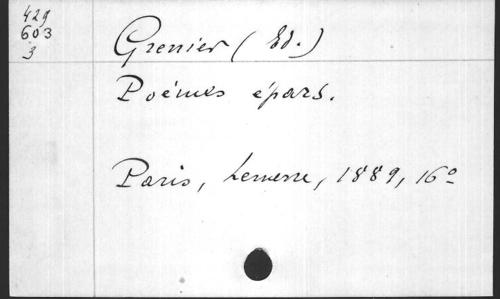 429
603
3
Grenier (Ed.)
Poémes épars.
Paris, Lemerre, 1889, 16º